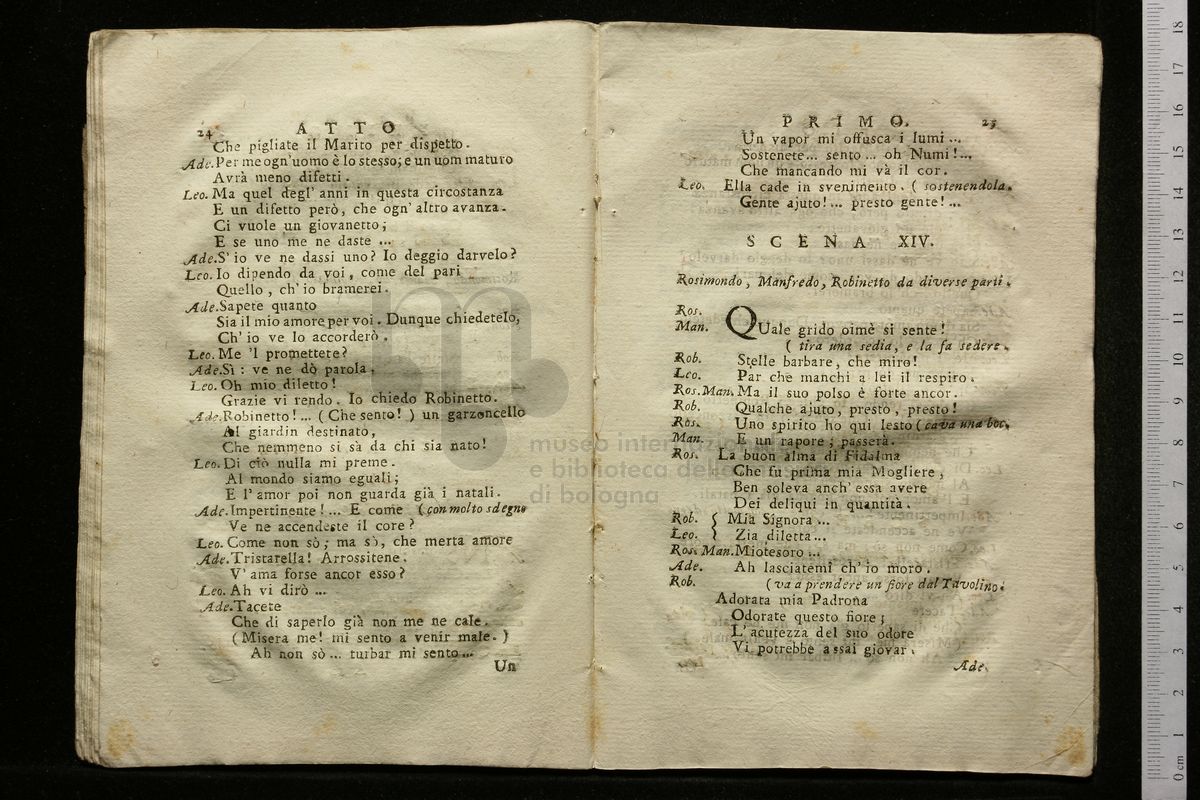 24 ATTO
Che pigliate il Marito per dispetto.
Ade. Per me ogn'uomo è lo stesso; e un uom maturo
Avrà meno difetti.
Leo. Ma quel degl' anni in questa circostanza
E un difetto però, che ogn' altro avanza.
Ci vuole un giovanetto;
E se uno me ne daste ...
Ade. S' io ve ne dassi uno? Io deggio darvelo?
Leo. Io dipendo da voi, come del pari
Quello, ch' io bramerei.
Ade. Sapete quanto
Sia il mio amore per voi. Dunque chiedetelo,
Ch' io ve lo accorderò.
Leo. Me 'l promettete?
Ade. Sì: ve ne dò parola.
Leo. Oh mio diletto!
Grazie vi rendo. Io chiedo Robinetto.
Ade. Robinetto! ... (Che sento!) un garzoncello
Al giardin destinato,
Che nemmeno si sà da chi sia nato!
Leo. Di ciò nulla mi preme.
Al mondo siamo eguali;
E l' amor poi non guarda già i natali.
Ade. Impertinente! ... E come (con molto sdegno
Ve ne accendeste il core?
Leo. Come non sò; ma sò, che merta amore
Ade. Tristarella! Arrossitene.
V' ama forse ancor esso?
Leo. Ah vi dirò ...
Ade. Tacete
Che di saperlo già non me ne cale.
(Misera me! mi sento a venir male.)
Ah non sò ... turbar mi sento ...
Un
PRIMO. 25
Un vapor mi offusca i lumi ...
Sostenete ... sento ... oh Numi! ...
Che mancando mi và il cor.
Leo. Ella cade in svenimento. (sostenendola.
Gente ajuto! ... presto gente! ...
SCENA XIV.
Rosimondo, Manfredo, Robinetto da diverse parti.
Ros.
Man. QUale grido oimè si sente!
(tira una sedia, e la fa sedere.
Rob. Stelle barbare, che miro!
Leo. Par che manchi a lei il respiro.
Ros. Man. Ma il suo polso è forte ancor.
Rob. Qualche ajuto, presto, presto!
Ros. Uno spirito ho qui lesto (cava una boc.
Man. E un rapore; passerà.
Ros. La buon alma di Fidalma
Che fu prima mia Mogliere,
Ben soleva anch' essa avere
Dei deliqui in quantità.
Rob. { Mia Signora ...
Leo. } Zia diletta ...
Ros. Man. Mio tesoro ...
Ade. Ah lasciatemi ch' io moro.
Rob. (va a prendere un fiore dal Tavolino.
Adorata mia Padrona
Odorate questo fiore;
L' acutezza del suo odore
Vi potrebbe assai giovar.
Ade.
museo internazionale
e biblioteca della
di bologna
0 cm 1 2 3 4 5 6 7 8 9 10 11 12 13 14 15 16 17 18